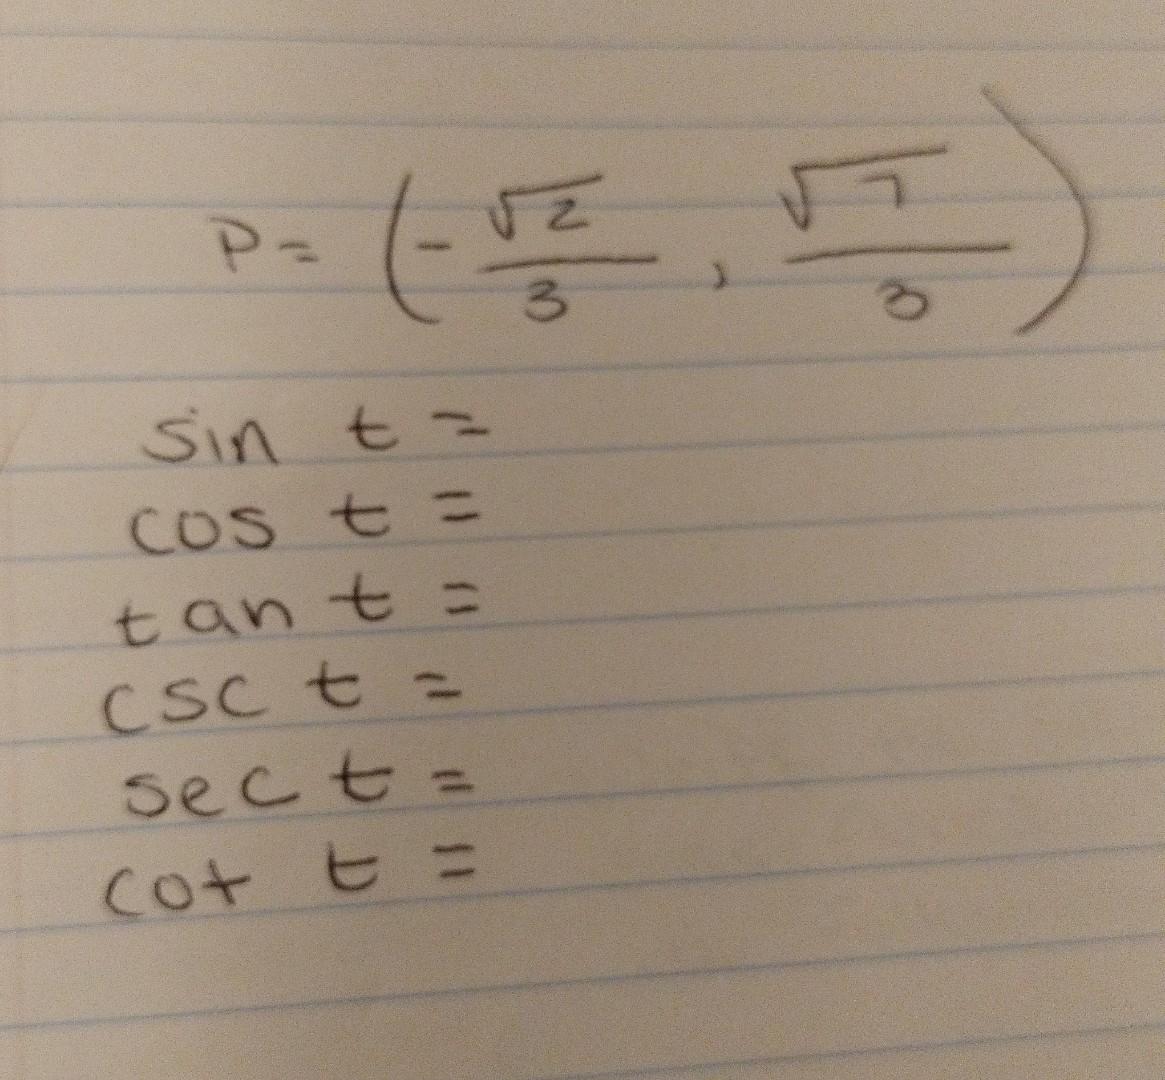 P = (-√2/3, √7/3)
sin t =
cos t =
tan t =
csc t =
sec t =
cot t =